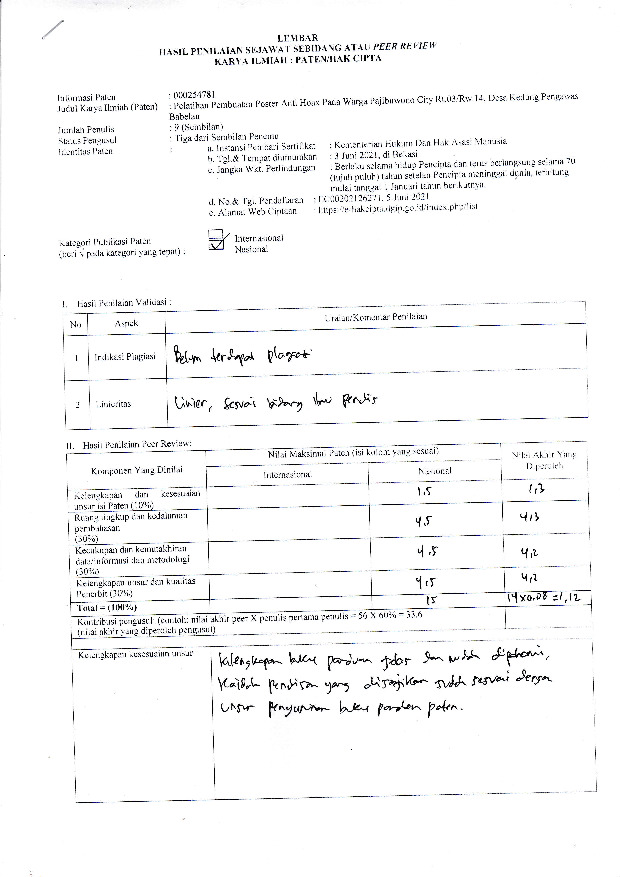 LEMBAR
HASIL PENILAIAN SEJAWAT SEBIDANG ATAU PEER REVIEW
KARYA ILMIAH : PATEN/HAK CIPTA
Informasi Paten : 000254781
Judul Karya Ilmiah (Paten) : Pelatihan Pembuatan Poster Anti Hoax Pada Warga Pajibuwono City Rt.03/Rw 14, Desa Kedung Pengawas
Babelan
Jumlah Penulis : 9 (Sembilan)
Status Pengusul : Tiga dari Sembilan Pencipta
Identitas Paten : a. Instansi Pemberi Sertifikat : Kementerian Hukum Dan Hak Asasi Manusia
b. Tgl.& Tempat diumumkan : 3 Juni 2021, di Bekasi
c. Jangka Wkt. Perlindungan : Berlaku selama hidup Pencipta dan terus berlangsung selama 70
(tujuh puluh) tahun setelah Pencipta meninggal dunia, terhitung
mulai tanggal 1 Januari tahun berikutnya.
d. No.& Tgl. Pendaftaran : EC00202126271, 5 Juni 2021
e. Alamat Web Ciptaan : https://e-hakcipta.dgip.go.id/index.php/list
Kategori Publikasi Paten Internasional
(beri √ pada kategori yang tepat) : √ Nasional
I. Hasil Penilaian Validasi :
No Aspek Uraian/Komentar Penilaian
1 Indikasi Plagiasi Belum terdapat plagiasi
2 Linieritas Linier, sesuai bidang ilmu penulis
II. Hasil Penilaian Peer Review:
Komponen Yang Dinilai Nilai Maksimal Paten (isi kolom yang sesuai) Nilai Akhir Yang
Internasional Nasional Diperoleh
Kelengkapan dan kesesuaian 1,5 1,3
unsur isi Paten (10%)
Ruang lingkup dan kedalaman 4,5 4,3
pembahasan
(30%)
Kecukupan dan kemutakhiran 4,5 4,2
data/informasi dan metodologi
(30%)
Kelengkapan unsur dan kualitas 4,5 4,2
Penerbit (30%)
Total = (100%) 15 14x0.08 =1,12
Kontribusi pengusul (contoh: nilai akhir peer X penulis pertama penulis = 56 X 60% = 33.6
(nilai akhir yang diperoleh pengusul)
Kelengkapan kesesuaian unsur Kelengkapan buku panduan jelas dan mudah dipahami,
Kaidah penulisan yang disajikan sudah sesuai dengan
unsur penyusunan buku panduan paten.